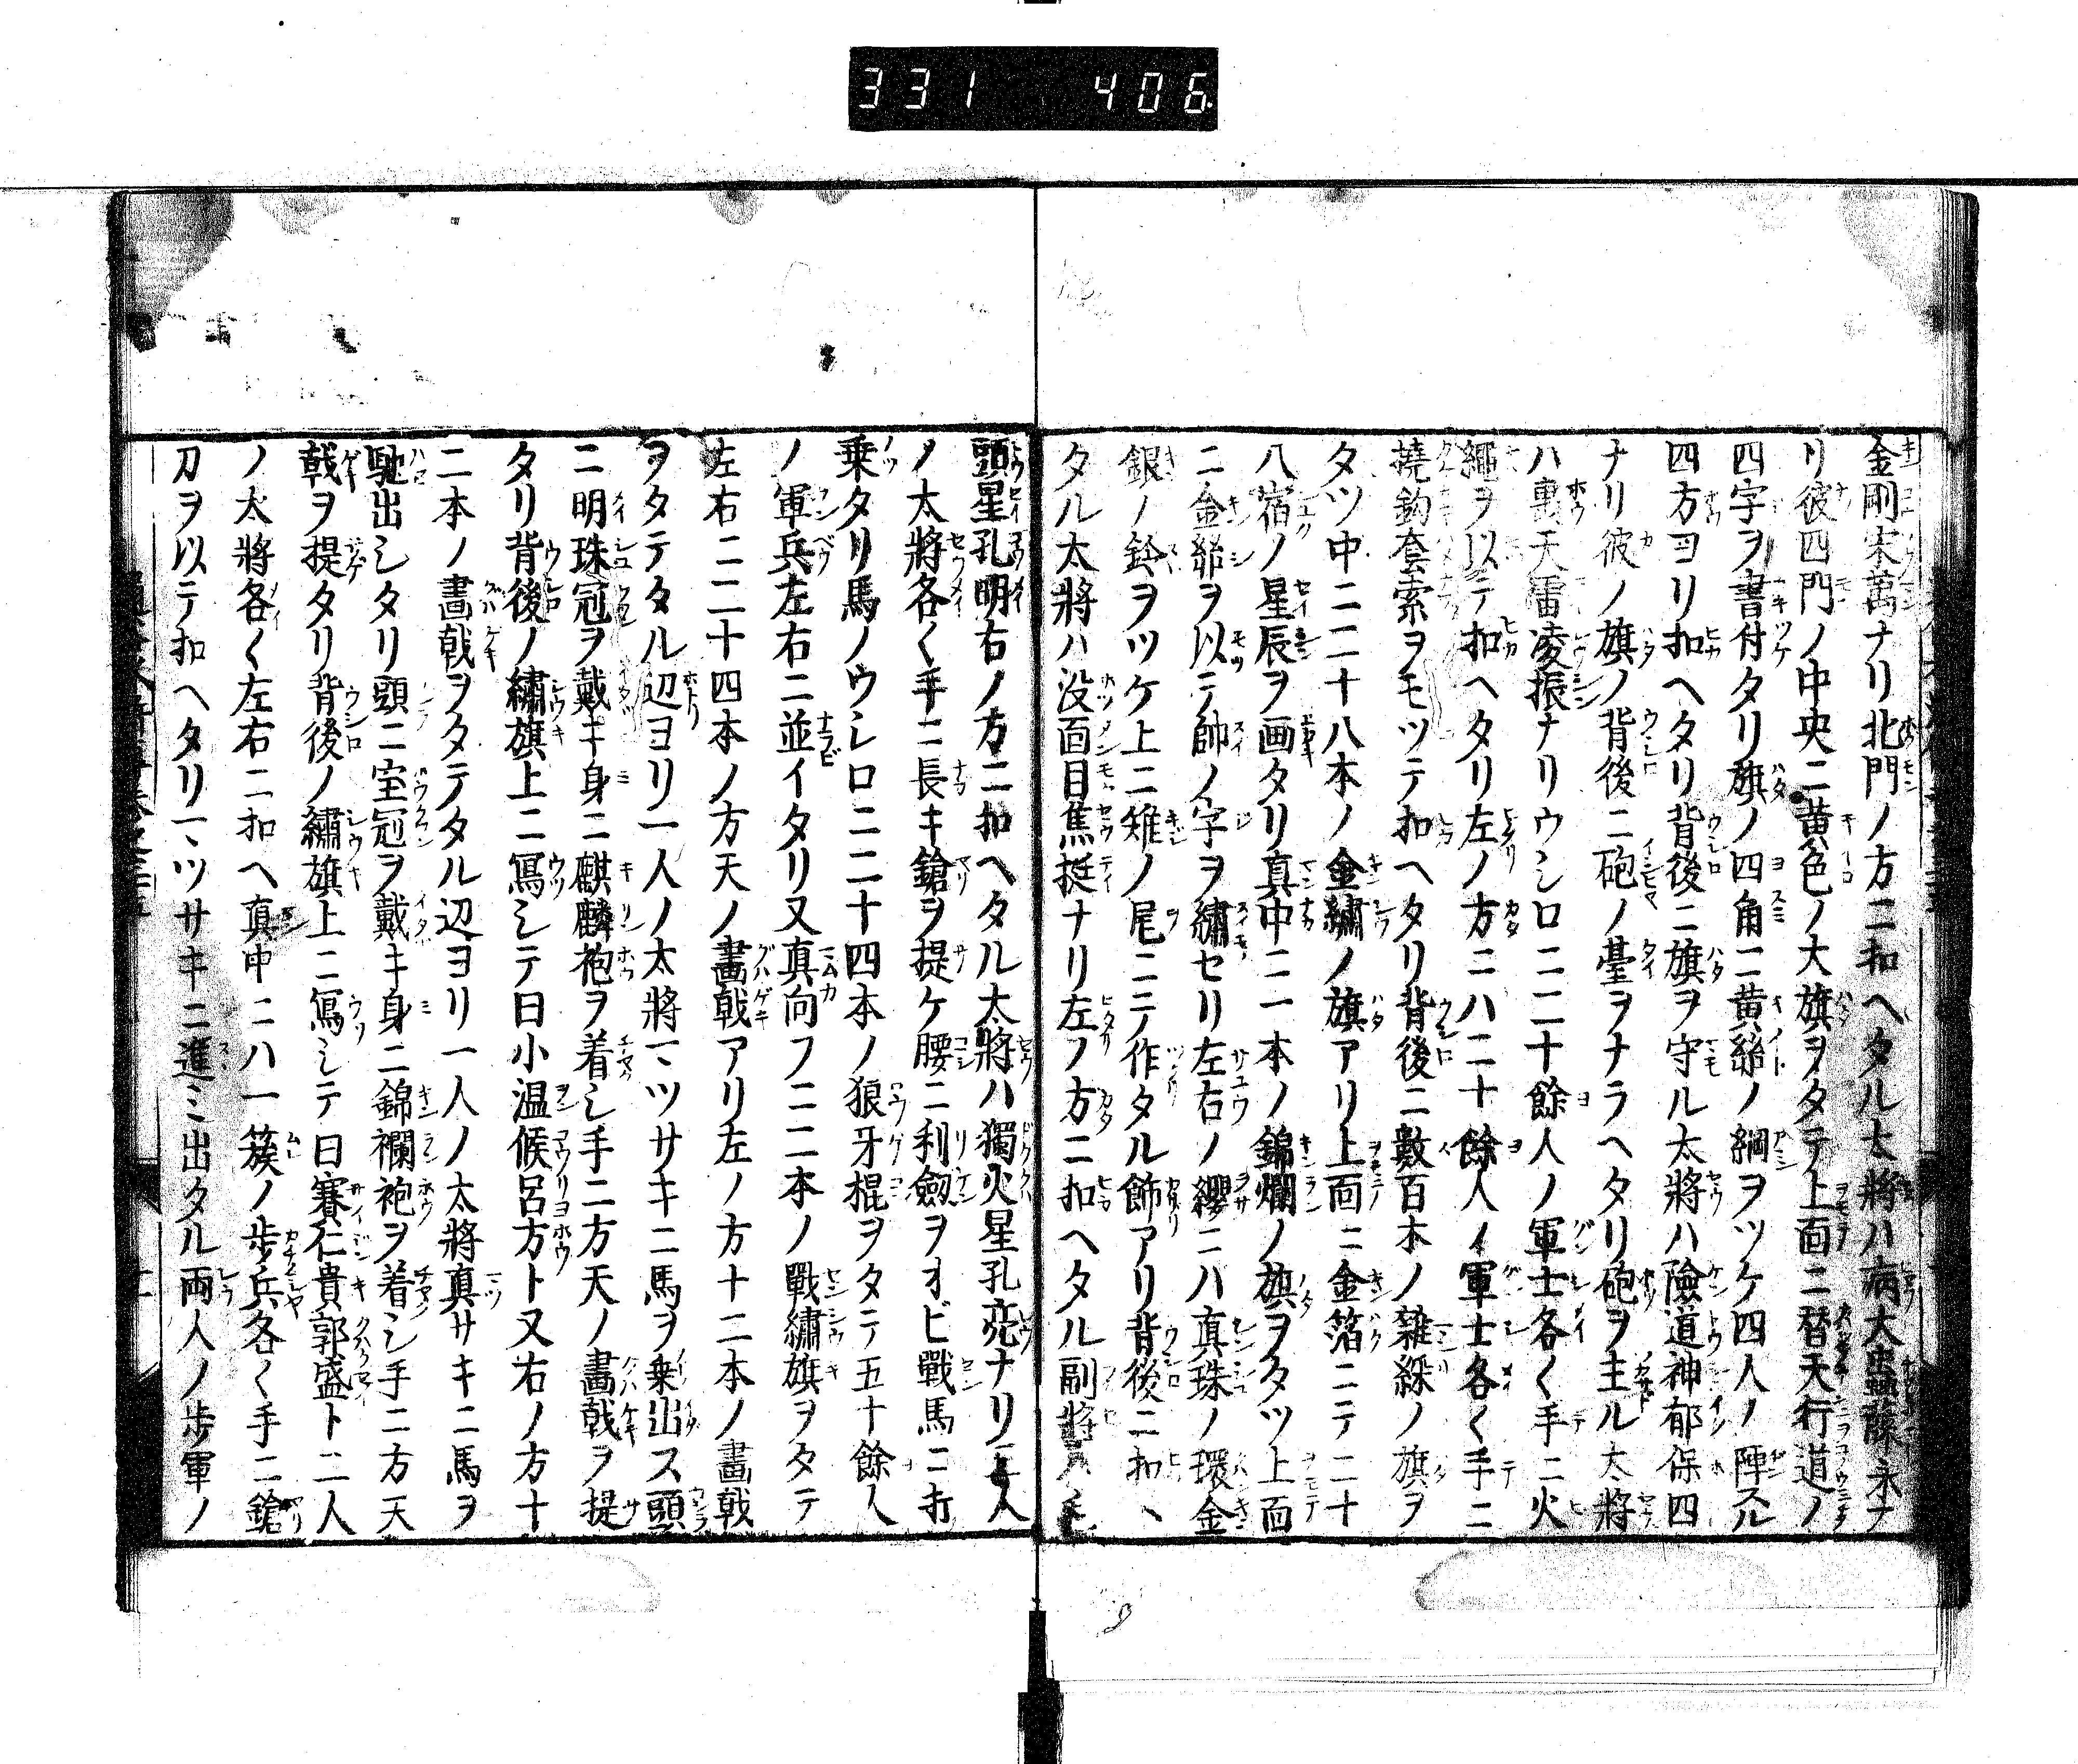 331 406
金剛宋萬ナリ北門ノ方ニ扣ヘタル太將ハ病大蟲薛永ナ
リ彼四門ノ中央ニ黄色ノ大旗ヲタテ上面ニ替天行道ノ
四字ヲ書付タリ旗ノ四角ニ黄絲ノ綱ヲツケ四人ノ陣スル
四方ヨリ扣ヘタリ背後ニ旗ヲ守ル太將ハ險道神郁保四
ナリ彼ノ旗ノ背後ニ砲ノ臺ヲナラヘタリ砲ヲ主ル太將
ハ轟天雷凌振ナリウシロニ二十餘人ノ軍士各〱手ニ火
繩ヲ以テ扣ヘタリ左ノ方ニハ二十餘人ノ軍士各〱手ニ
撓鈎套索ヲモツテ扣ヘタリ背後ニ數百本ノ雜綵ノ旗ヲ
タツ中ニ二十八本ノ金繍ノ旗アリ上面ニ金箔ニテ二十
八宿ノ星辰ヲ画タリ真中ニ一本ノ錦爛ノ旗ヲタツ上面
ニ金絲ヲ以テ帥ノ字ヲ繍セリ左右ノ纓ニハ真珠ノ環金
銀ノ鈴ヲツケ上ニ雉ノ尾ニテ作タル飾アリ背後ニ扣ヘ
タル太將ハ没面目焦挺ナリ左ノ方ニ扣ヘタル副將ハ毛
頭星孔明右ノ方ニ扣ヘタル太將ハ獨火星孔亮ナリ二人
ノ太將各〱手ニ長キ鎗ヲ提ケ腰ニ利劔ヲオビ戰馬ニ打
乗タリ馬ノウシロニ二十四本ノ狼牙棍ヲタテ五十餘人
ノ軍兵左右ニ並イタリ又真向フニ二本ノ戰繍旗ヲタテ
左右ニ二十四本ノ方天ノ畵戟アリ左ノ方十二本ノ畵戟
ヲタテタル辺ヨリ一人ノ太將マツサキニ馬ヲ乗出ス頭
ニ明珠冠ヲ戴キ身ニ麒麟袍ヲ着シ手ニ方天ノ畵戟ヲ提
タリ背後ノ繍旗上ニ寫シテ曰小温候呂方ト又右ノ方十
二本ノ畵戟ヲタテタル辺ヨリ一人ノ太將真サキニ馬ヲ
馳出シタリ頭ニ宝冠ヲ戴キ身ニ錦襴袍ヲ着シ手ニ方天
戟ヲ提タリ背後ノ繍旗上ニ寫シテ曰賽仁貴郭盛ト二人
ノ太將各〱左右ニ扣ヘ真中ニハ一簇ノ歩兵各〱手ニ鎗
刀ヲ以テ扣ヘタリマツサキニ進ミ出タル両人ノ歩軍ノ